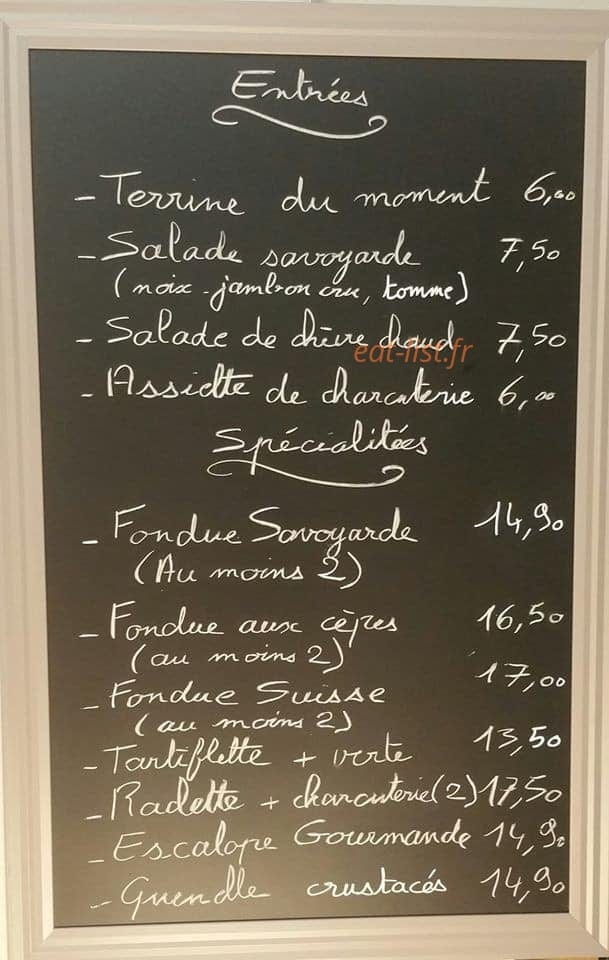 Entrées
- Terrine du moment 6,00
- Salade savoyarde 7,50
(noix - jambon cru, tomme)
- Salade de chèvre chaud 7,50
eat-list.fr
- Assiette de charcuterie 6,00
Spécialitées
- Fondue Savoyarde 14,90
(Au moins 2)
- Fondue aux cèpes 16,50
(au moins 2)
- Fondue Suisse 17,00
(au moins 2)
- Tartiflette + verte 13,50
- Raclette + charcuterie (2) 17,50
- Escalope Gourmande 14,90
- Quenelle crustacés 14,90